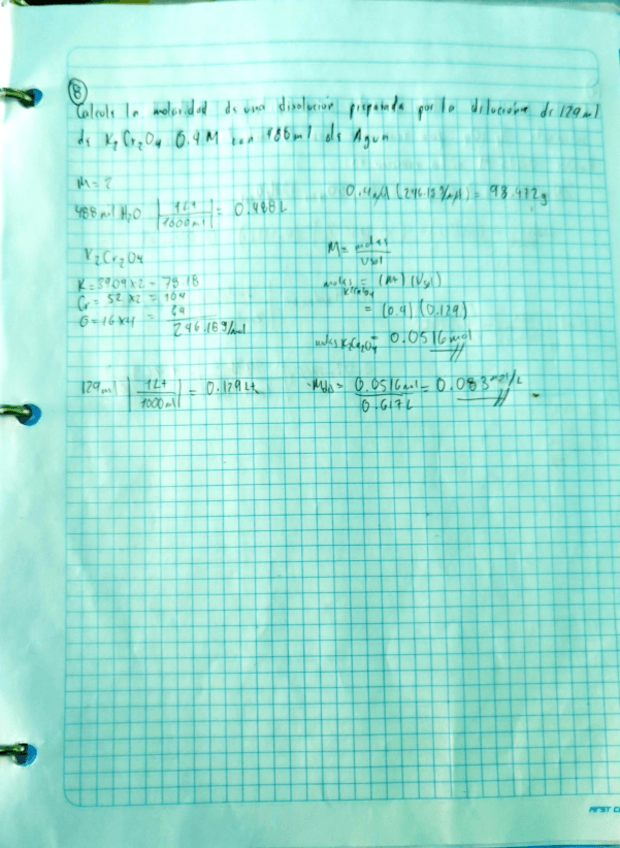 8
Calcule la molaridad de una disolución preparada por la dilución de 129 ml
de K2Cr2O4 0.4 M con 488 ml de Agua
M = ?
488 ml H2O | 1 Lt / 1000 ml | = 0.488 L
0.4 (246.18 g/mol) = 98.472 g
K2Cr2O4
K = 39.09 x 2 = 78.18
Cr = 52 x 2 = 104
O = 16 x 4 = 64
246.18 g/mol
M = moles / Vsol
moles K2Cr2O4 = (M) (Vsol)
= (0.4) (0.129)
moles K2Cr2O4 = 0.0516 mol
129 ml | 1 Lt / 1000 ml | = 0.129 Lt
= 0.0516 mol / 0.617 L = 0.083 mol/L
FIRST C